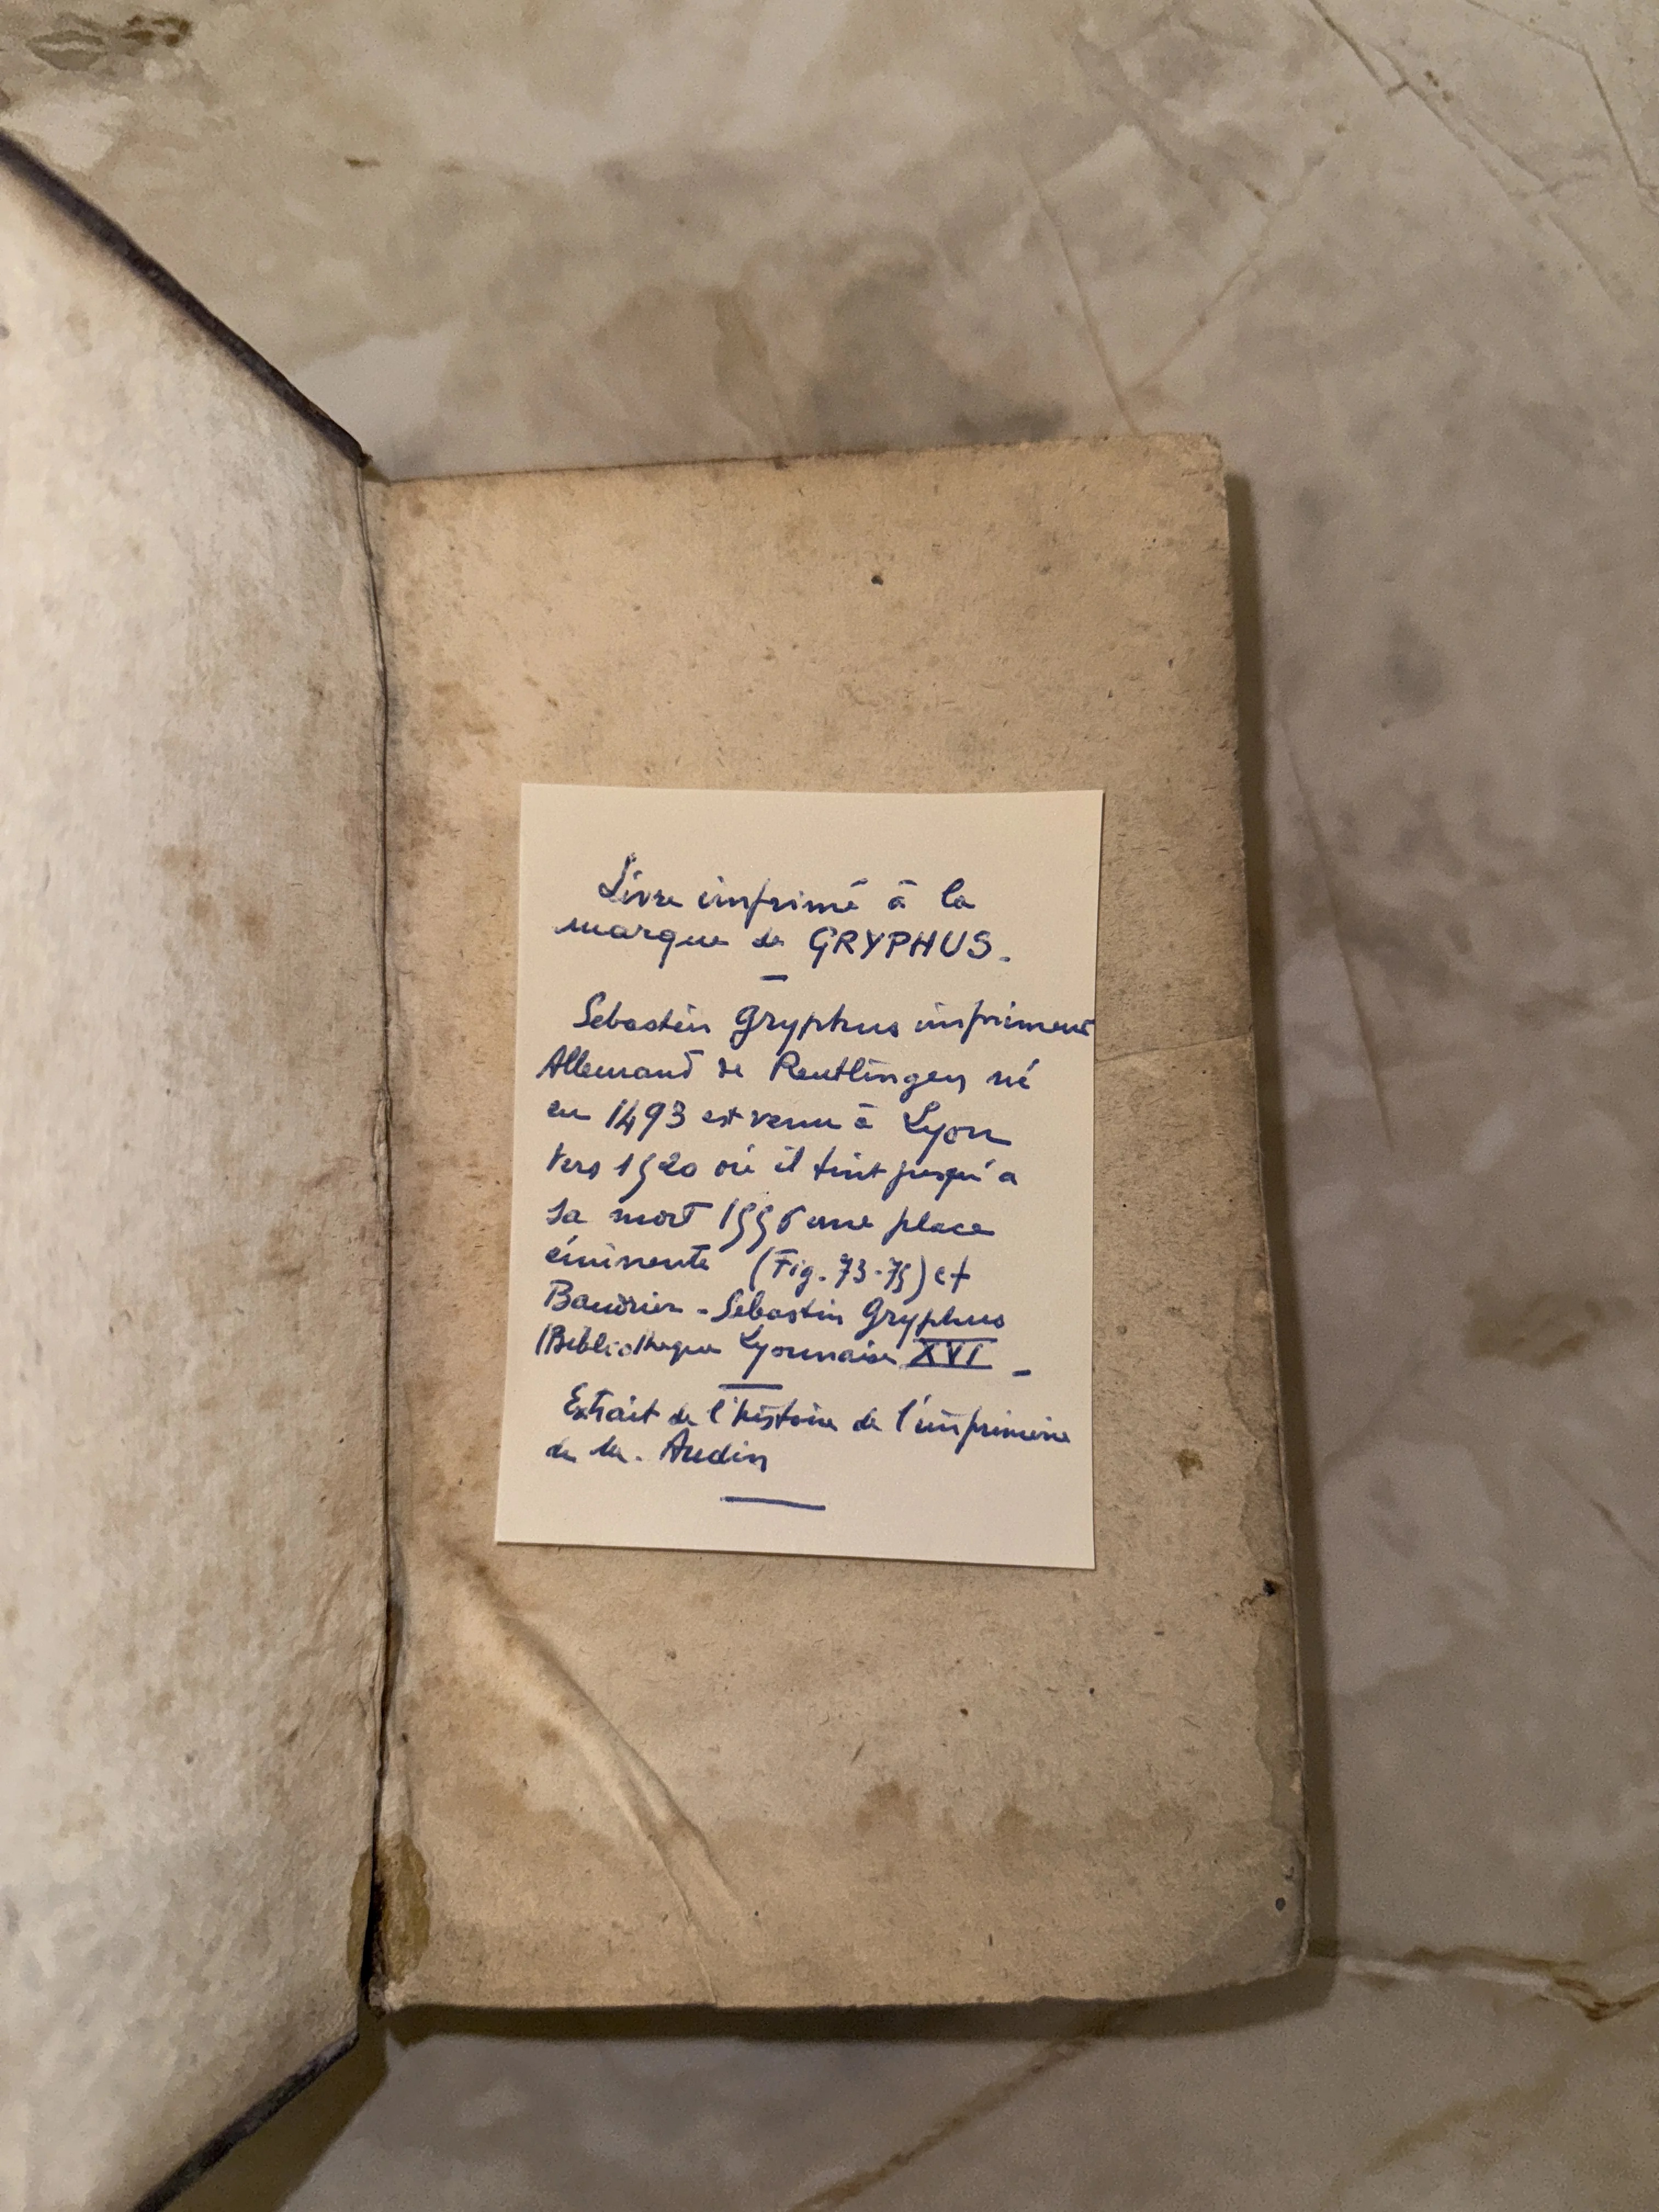 Livre imprimé à la
marque de GRYPHUS.
Sebastien Gryphus imprimeur
Allemand de Reutlingen né
en 1493 est venu à Lyon
vers 1520 où il tint jusqu'a
sa mort 1556 une place
éminente (Fig. 73-75) cf
Baudrier - Sebastien Gryphus
Bibliotheque Lyonnaise XVI
Extrait de l'histoire de l'imprimerie
de M. Audin